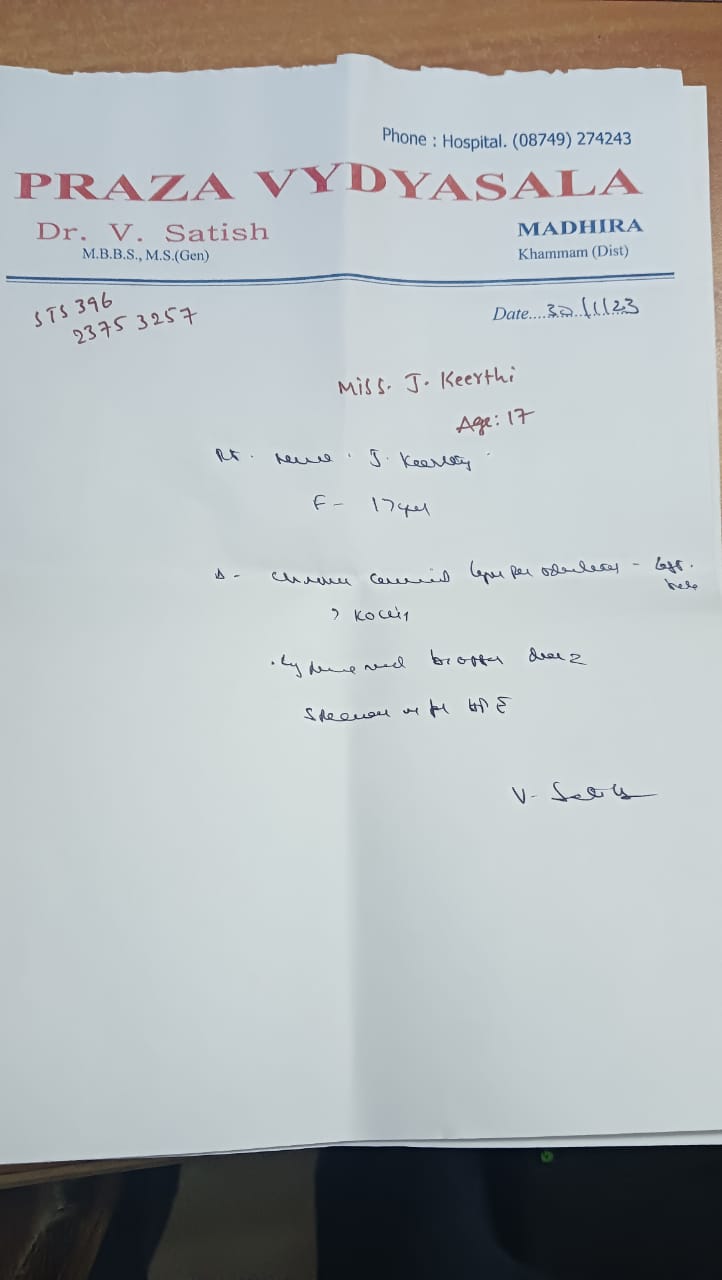 Phone : Hospital. (08749) 274243
PRAZA VYDYASALA
Dr. V. Satish
M.B.B.S., M.S.(Gen)
MADHIRA
Khammam (Dist)
STS 396
2375 3257
Date.... 30/11/23
Miss. J. Keerthi
Age: 17
Pt. name : J. Keerthy
F - 17 yrs
Δ - Chronic cervical
? Koch's
Specimen HPE
V. Satish